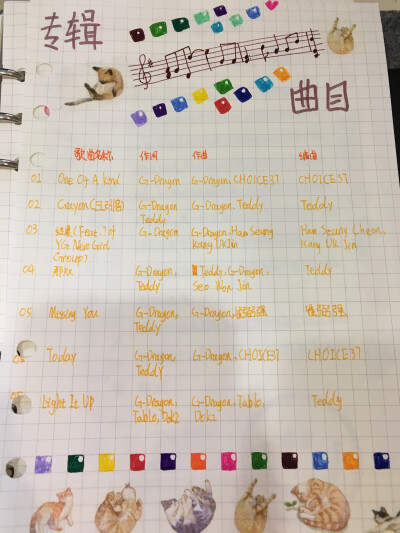 专辑
曲目
歌曲名称 作词 作曲 编曲
01 One Of A Kind G-Dragon G-Dragon, CHOICE37 CHOICE37
02 Crayon(크레용) G-Dragon, G-Dragon, Teddy Teddy
Teddy
03 结局(Feat.?of G-Dragon G-Dragon, Ham Seung Ham Seung Cheon,
YG New Girl Kang UK Jin Kang UK Jin
Group)
04 那XX G-Dragon, Teddy, G-Dragon, Teddy
Teddy Seo Won Jin
05 Missing You G-Dragon, G-Dragon,
Teddy
Today G-Dragon, G-Dragon, CHOICE37 CHOICE37
Teddy
Light It Up G-Dragon, G-Dragon, Tablo, Teddy
Tablo, Dok2 Dok2